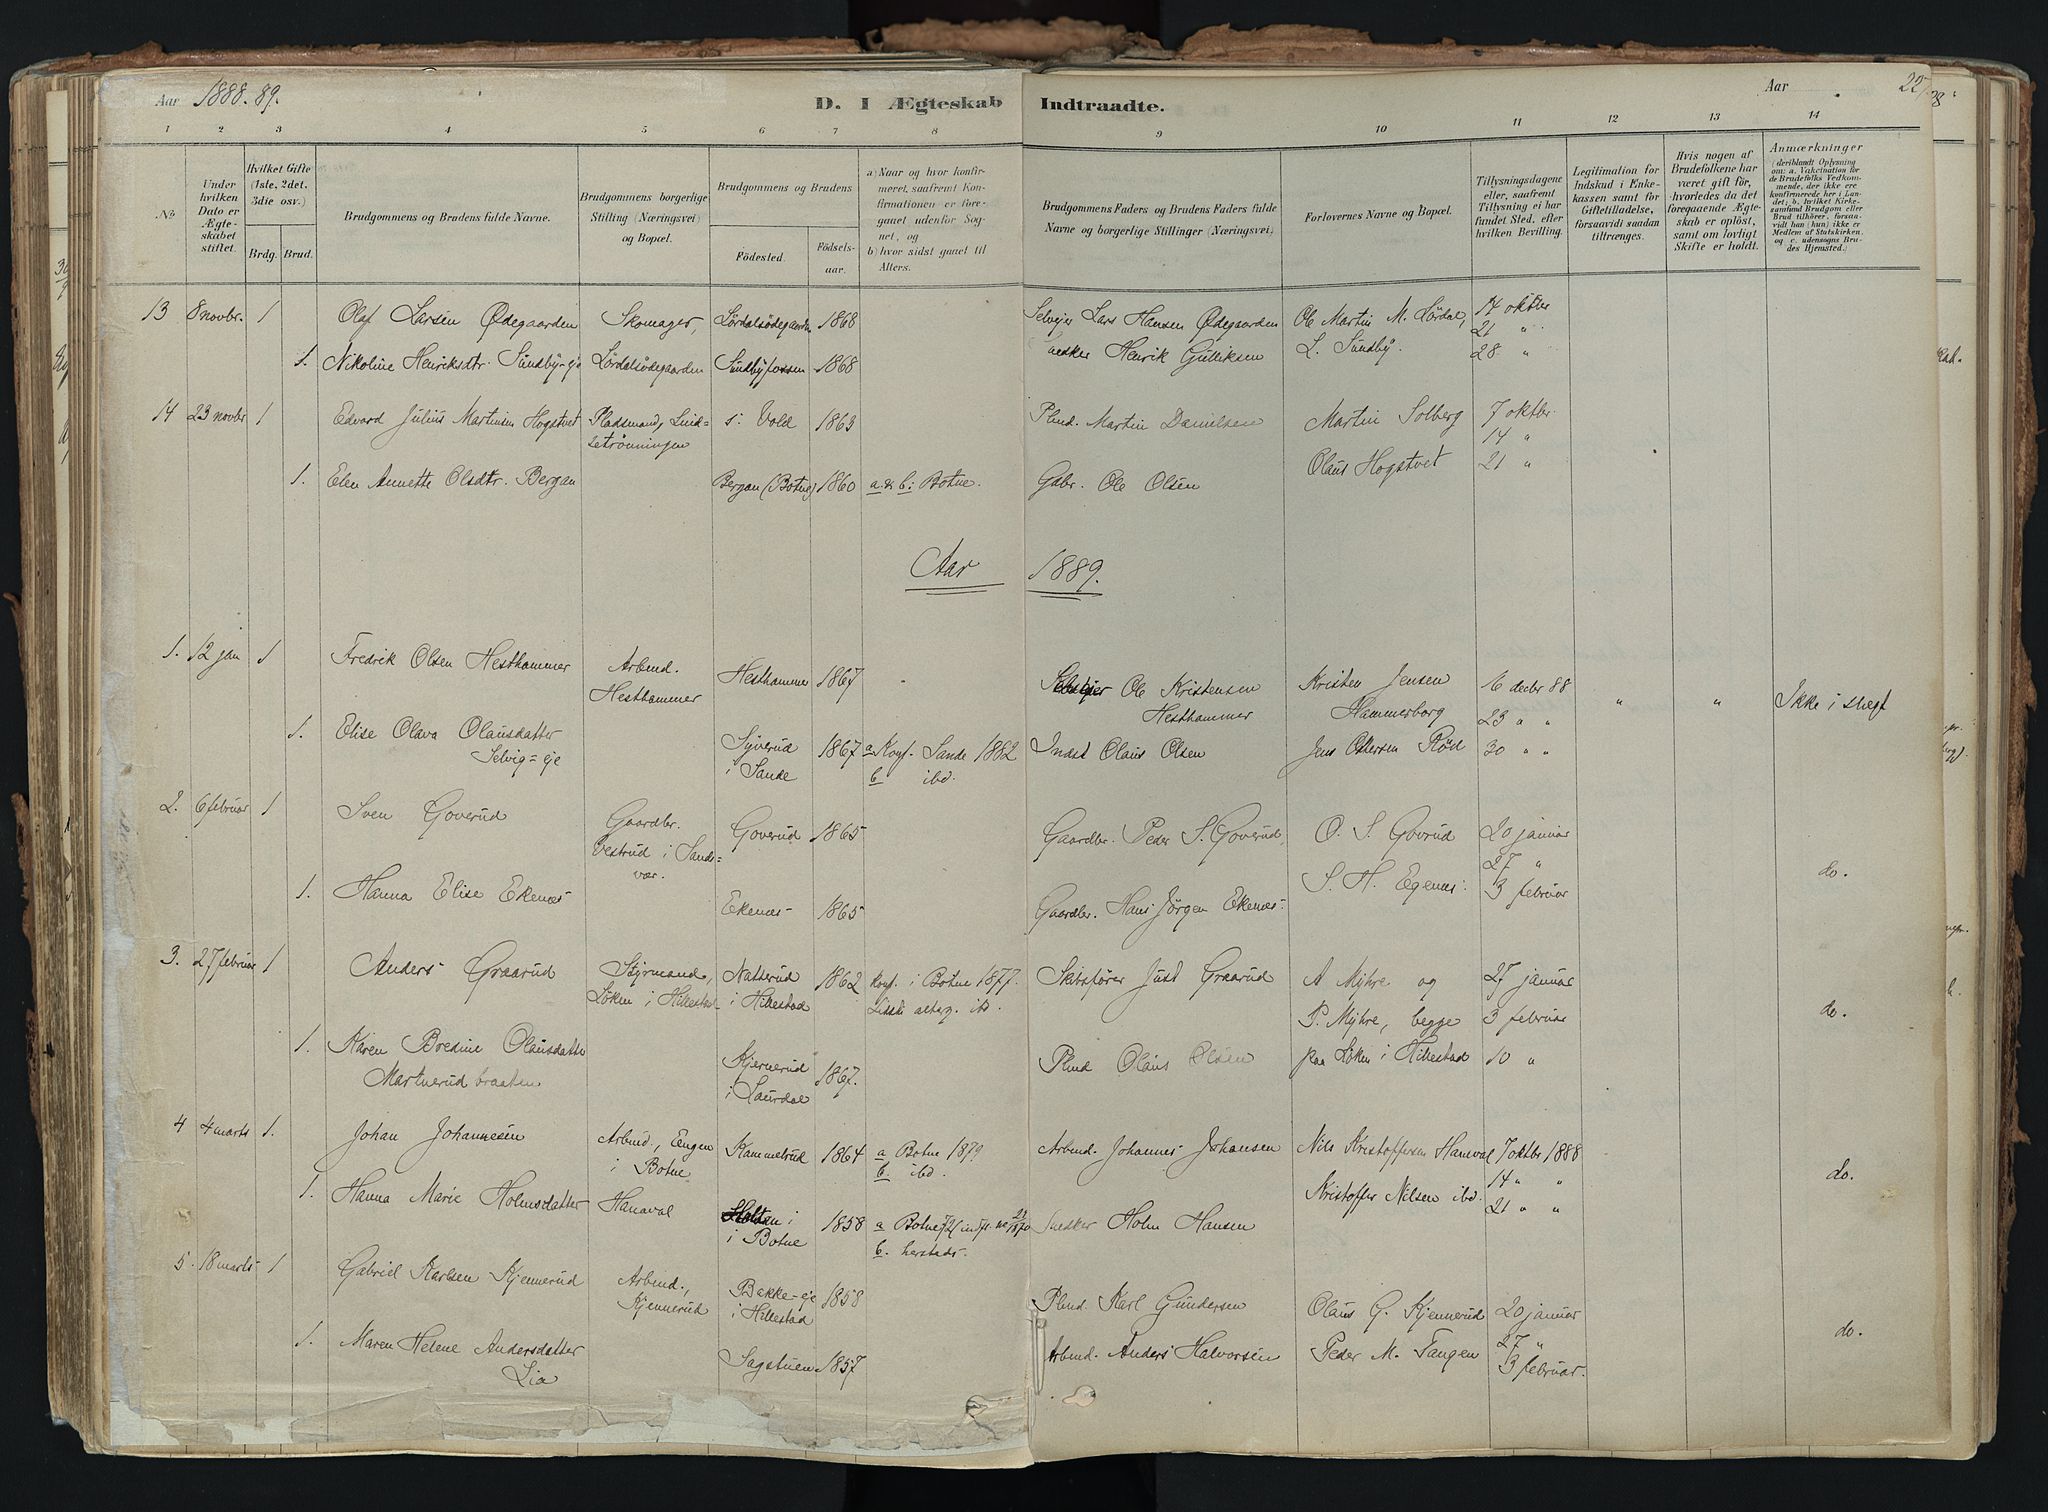 Aar 1888. 89.
D. I Ægteskab Indtraadte.
Aar
227
28
1 2 3 4 5 6 7 8 9 10 11 12 13 14
№
Under hvilken Dato er Ægteskabet stiftet.
Hvilket Gifte (1ste, 2det, 3die osv.)
Brdg. Brud.
Brudgommens og Brudens fulde Navne.
Brudgommens borgerlige Stilling (Næringsvei) og Bopæl.
Brudgommens og Brudens
Fødested.
Fødselsaar.
a) Naar og hvor konfirmeret, saafremt Konfirmationen er foregaaet udenfor Sognet, og
b) hvor sidst gaaet til Alters.
Brudgommens Faders og Brudens Faders fulde Navne og borgerlige Stillinger (Næringsvei).
Forlovernes Navne og Bopæl.
Tillysningsdagene eller, saafremt Tillysning ei har fundet Sted, efter hvilken Bevilling.
Legitimation for Indskud i Enkekassen samt for Giftetilladelse, forsaavidt saadan tiltrænges.
Hvis nogen af Brudefolkene har været gift før, hvorledes da det foregaaende Ægteskab er opløst, samt om lovligt Skifte er holdt.
Anmærkninger
(deriblandt Oplysning om: a. Vakcination for de Brudefolks Vedkommende, der ikke ere konfirmerede her i Landet; b. hvilket Kirkesamfund Brudgom eller Brud tilhører, forsaavidt han (hun) ikke er Medlem af Statskirken, og c. udensogns Brudes Hjemsted.)
13 8 novbr. 1 Olaf Larsen Ødegaarden Skomager, Lørdalsødegaarden 1868 Selveier Lars Hansen Ødegaarden Ole Martin M. Lørdal, 14 oktbr
21 "
1. Nikoline Henriksdtr. Sundby-eje Lørdalsødegaarden Sundbyfossen 1868 Snedker Henrik Gulliksen L. Sundby. 28 "
14 23 novbr 1 Edvard Julius Martinsen Hogstvet Pladsmand, Lind= s. Vold 1863 Plmd. Martin Danielsen Martin Solberg 7 oktbr.
setrønningen 14 "
1. Elen Annette Olsdtr. Bergan Bergan (Botne) 1860 a & b: Botne. Gbr. Ole Olsen Olaus Hogstvet 21 "
Aar 1889.
1. 12 jan 1 Fredrik Olsen Hesthammer Arbmd. Hesthammer 1867 Selveier Ole Kristensen Kristen Jensen 16 decbr 88 " " Ikke i slægt
Hesthammer Hesthammer Hammerborg 23 " "
1. Elise Olava Olausdatter Syverud 1867 a Konf. Sande 1882 Indst Olaus Olsen Jens Ottersen Rød 30 " "
Selvig=eje i Sande b ibd.
2. 6 februar 1 Sven Goverud Gaardbr. Goverud 1865 Gaardbr. Peder S. Goverud, O. S. Govrud 20 januar
Vestrud i Sands= 27 " do.
vær.
1. Hanna Elise Ekenæs Ekenæs 1865 Gaardbr. Hans Jørgen Ekenæs. S. H. Egenæs. 3 februar
3. 27 februar 1 Anders Graarud Styrmand, Natterud 1862 Konf. i Botne 1877. Skibsfører Just Graarud A Myhre og 27 januar
Løken i Hillestad i Hillestad Sidst alterg. ibd. P. Myhre, begge 3 februar do.
1. Karen Bredine Olausdatter Kjennerud 1867. Plmd Olaus Olsen paa Løken i Hillestad 10 "
Martnerud braaten i Laurdal
4 4 marts 1. Johan Johannesen Arbmd., Engen Kammelrud 1864 a Botne 1879 Arbmd. Johannes Johansen Nils Kristoffersen Hanaval 7 oktbr 1888
i Botne b. ibd. 14 " " do.
1. Hanna Marie Holmsdatter Hanaval Holtan i 1858 a Botne Snedker Holm Hansen Kristoffer Nilsen ibd. 21 " "
i Botne b. hersteds.
5. 18 marts 1 Gabriel Karlsen Kjennerud Arbmd., Bakke-eje 1858 Plmd. Karl Gundersen Olaus G. Kjennerud 20 januar
Kjennerud i Hillestad 27 " do.
1. Maren Helene Andersdatter Sagstuen 1857 Arbmd. Anders Halvorsen Peder M. Tangen 3 februar.
Lia